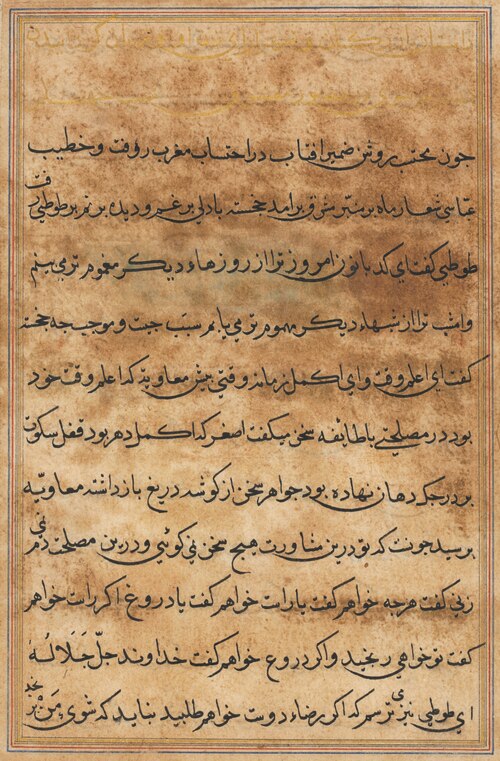 چون محتسب روشن ضمیر افتاب در احتساب مغرب رفت و خطیب
عباسی شعار ماه بر منبر مشرق برامد خجسته با دلی پر غم و دیده پر نم بر طوطی رفت
طوطی گفت ای کدبانو من امروز ترا از روزهاء دیگر مغموم تر می بینم
وامشب ترا از شبهاء دیگر مهموم تر می یابم سبب چیست و موجب چه خجسته
گفت ای اعلم وقت و ای اکمل زمانه وقتی پیش معاویه که اعلم وقت خود
بود در مصلحتی با طائفه سخن میکفت اصغر که اکمل دهر بود قفل سکوت
بر درجک دهان نهاده بود جواهر سخن از کوشه دریغ بازداشته معاویه
پرسید چونست که تو درین مشاورت هیچ سخن نی کوئی و درین مصلحت دم نمی
زنی گفت هرچه خواهم گفت یا راست خواهم گفت یا دروغ اگر راست خواهم
گفت تو خواهی رنجید و اگر دروغ خواهم گفت خداوند جل جلاله
ای طوطی نیز می ترسم که اگر رضاء دوست خواهم طلبید نباید که شوی من برنجد